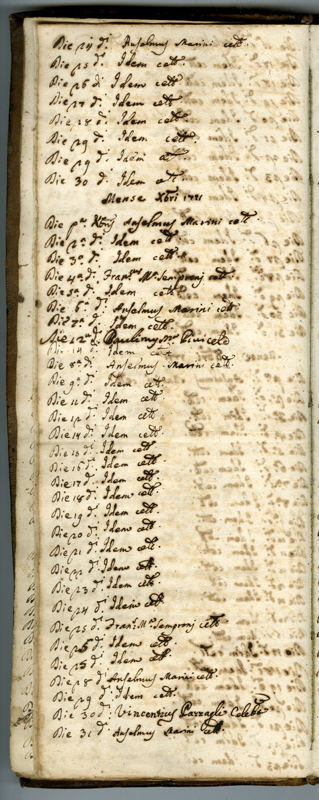 Die 24 d.º Anselmus Marini cett.
Die 25 d.º Idem cett.
Die 26 d.º Idem cett.
Die 27 d.º Idem cett.
Die 28 d.º Idem cett.
Die 29 d.º Idem cett.
Die 29 d.º Idem cett.
Die 30 d.º Idem cett.
Mense Xbri
Die pª Xbris Anselmus Marini cett.
Die 2ª d.º Idem cett.
Die 3ª d.º Idem cett.
Die 4ª d.º Fran.cus Mª Sempronj cett.
Die 5ª d.º Idem cett.
Die 6ª d.º Anselmus Marini cett.
Die 7ª d.º Idem cett.
Die 12ª d.º Paulinus
Die d.º Idem
Die 8ª d.º Anselmus Marini cett.
Die 9ª d.º Idem cett.
Die 11 d.º Idem cett.
Die 12 d.º Idem cett.
Die 14 d.º Idem cett.
Die 15 d.º Idem cett.
Die 16 d.º Idem cett.
Die 17 d.º Idem cett.
Die 18 d.º Idem cett.
Die 19 d.º Idem cett.
Die 20 d.º Idem cett.
Die 21 d.º Idem cett.
Die 22 d.º Idem cett.
Die 23 d.º Idem cett.
Die 24 d.º Idem cett.
Die 25 d.º Fran.cus Mª Sempronj cett.
Die d.º Idem cett.
Die d.º Idem cett.
Die 28 d.º Anselmus Marini cett.
Die 29 d.º Idem cett.
Die 30 d.º Vincentius
Die 31 d.º Anselmus Marini cett.